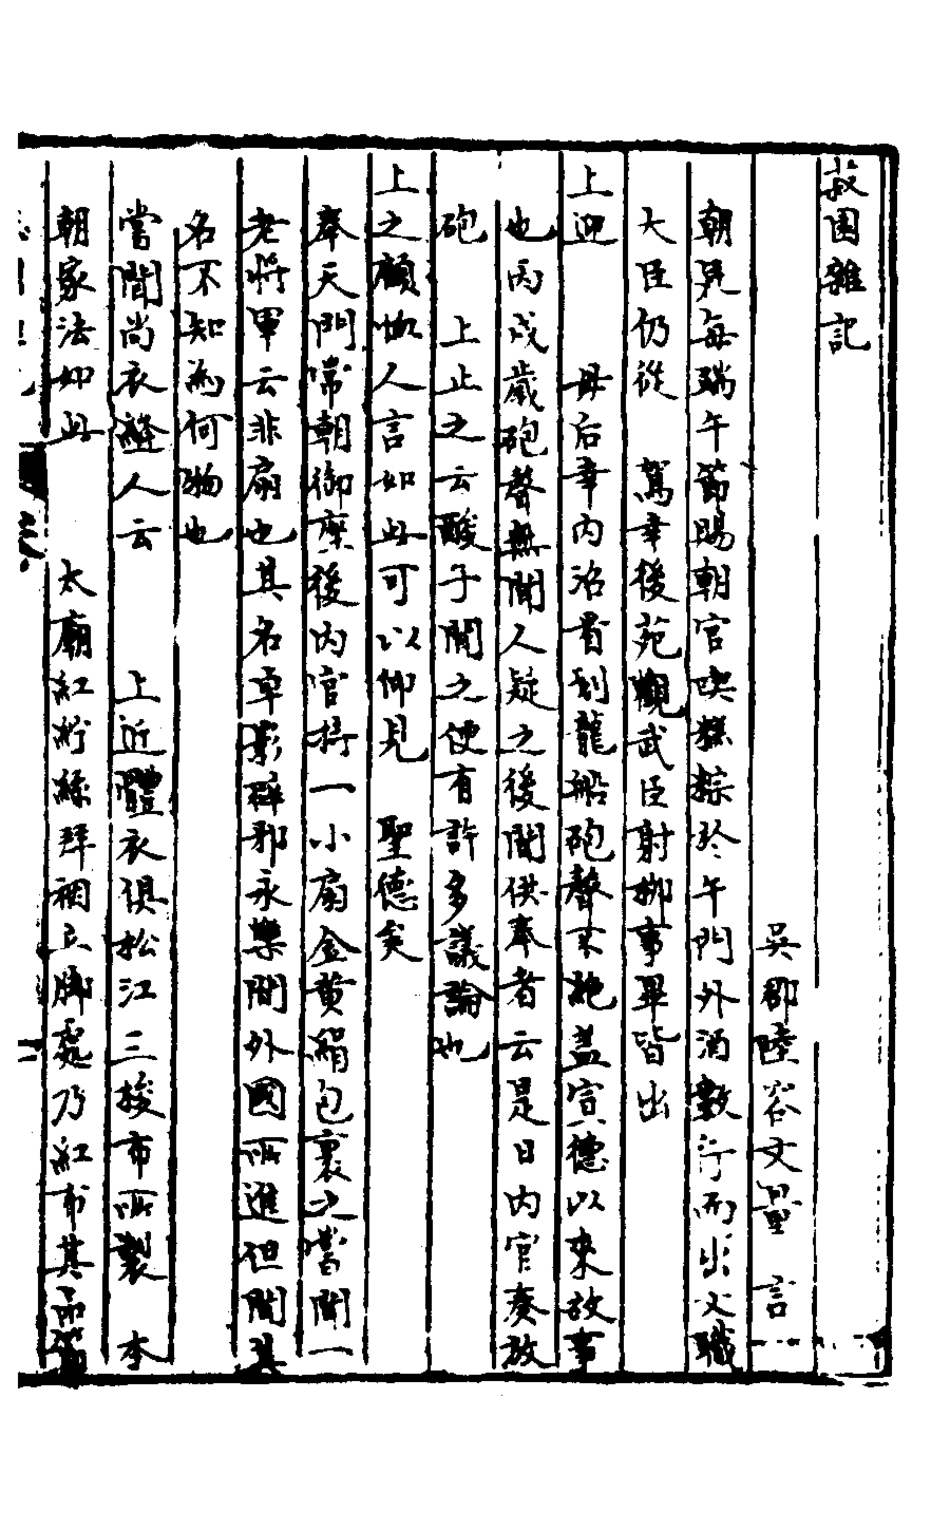 菽園雜記
吳郡陸容文量言
朝見每端午節賜朝官喫糕粽於午門外酒數行而出文職
大臣仍從　駕幸後苑觀武臣射柳事畢皆出
上迎　母后幸內沼看划龍船砲聲不絕盖宣德以來故事
也丙戌歲砲聲無聞人疑之後聞供奉者云是日內官奏放
砲　上止之云酸子聞之便有許多議論也
上之顧恤人言如此可以仰見　聖德矣
奉天門常朝御座後內官持一小扇金黃絹包裹之嘗聞一
老將軍云非扇也其名卓影辟邪永樂間外國所進但聞其
名不知為何物也
嘗聞尚衣縫人云　上近體衣俱松江三梭布所製　本
朝家法如此　太廟紅紵絲拜裀立脚處乃紅布其品節